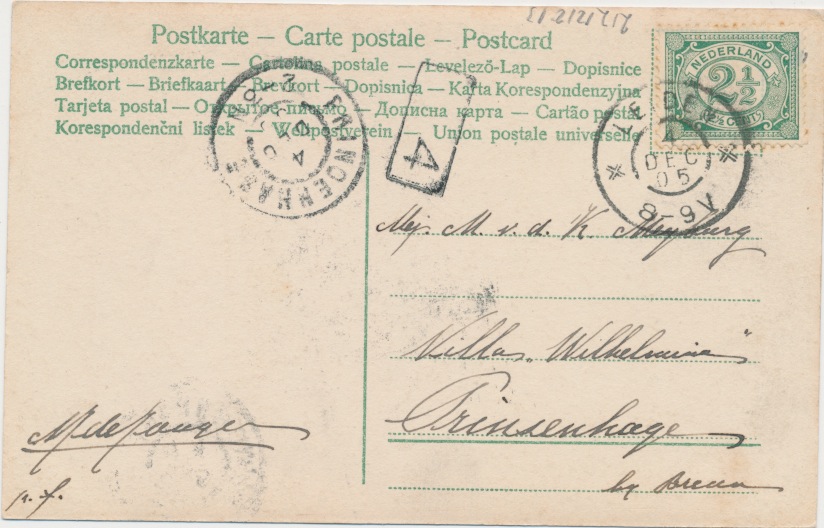 Postkarte – Carte postale – Postcard
Correspondenzkarte – Cartolina postale – Levelező-Lap – Dopisnice
Brefkort – Briefkaart – Brevkort – Dopisnica – Karta Korespondenzyjna
Tarjeta postal – Открытое письмо – Дописна карта – Cartão postal
Korespondenční lístek – Weltpostverein – Union postale universelle
NEDERLAND
2½
(2½ CENT)
DEC
05
8-9V
4
Mej. M. v. d. K. Meyburg
Villa „Wilhelmina"
Prinsenhage
by Breda
p. f.